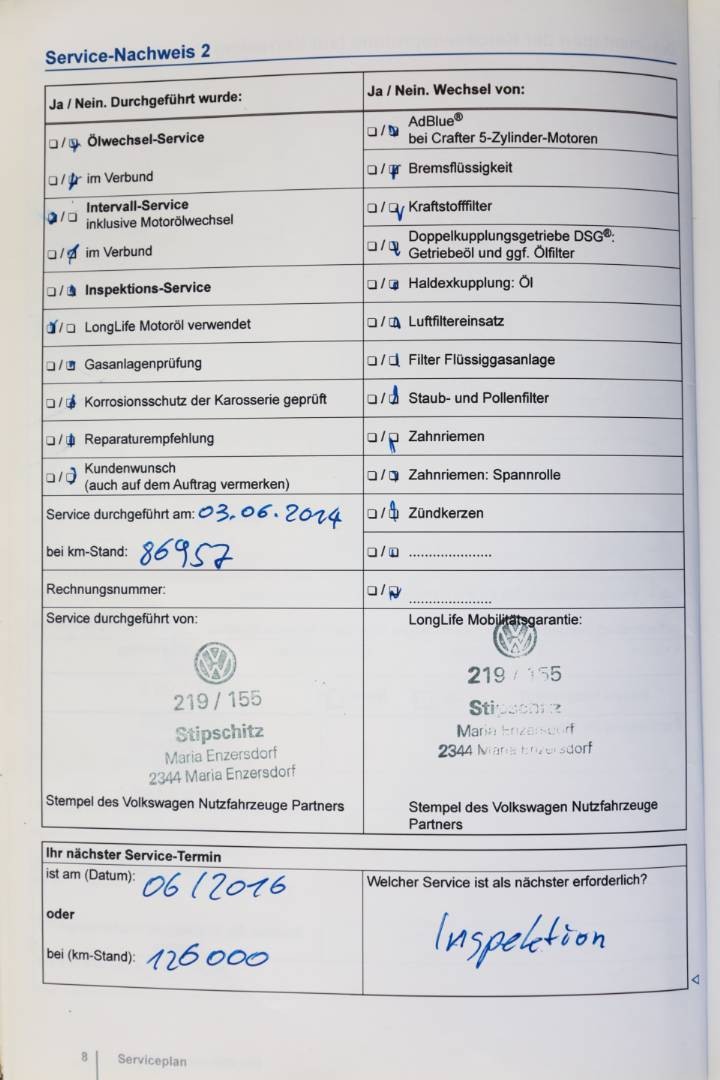 Service-Nachweis 2
Ja / Nein. Durchgeführt wurde:
☐/☐ Ölwechsel-Service
☐/☐ im Verbund
☐/☐ Intervall-Service
inklusive Motorölwechsel
☐/☐ im Verbund
☐/☐ Inspektions-Service
☐/☐ LongLife Motoröl verwendet
☐/☐ Gasanlagenprüfung
☐/☐ Korrosionsschutz der Karosserie geprüft
☐/☐ Reparaturempfehlung
☐/☐ Kundenwunsch
(auch auf dem Auftrag vermerken)
Service durchgeführt am: 03.06.2014
bei km-Stand: 86957
Rechnungsnummer:
Service durchgeführt von:
219 / 155
Stipschitz
Maria Enzersdorf
2344 Maria Enzersdorf
Stempel des Volkswagen Nutzfahrzeuge Partners
Ja / Nein. Wechsel von:
☐/☐ AdBlue®
bei Crafter 5-Zylinder-Motoren
☐/☐ Bremsflüssigkeit
☐/☐ Kraftstofffilter
☐/☐ Doppelkupplungsgetriebe DSG®:
Getriebeöl und ggf. Ölfilter
☐/☐ Haldexkupplung: Öl
☐/☐ Luftfiltereinsatz
☐/☐ Filter Flüssiggasanlage
☐/☐ Staub- und Pollenfilter
☐/☐ Zahnriemen
☐/☐ Zahnriemen: Spannrolle
☐/☐ Zündkerzen
☐/☐ .....................
☐/☐ .....................
LongLife Mobilitätsgarantie:
219 / 155
Stipschitz
Maria Enzersdorf
2344 Maria Enzersdorf
Stempel des Volkswagen Nutzfahrzeuge
Partners
Ihr nächster Service-Termin
ist am (Datum): 06/2016
oder
bei (km-Stand): 126000
Welcher Service ist als nächster erforderlich?
Inspektion
8 Serviceplan